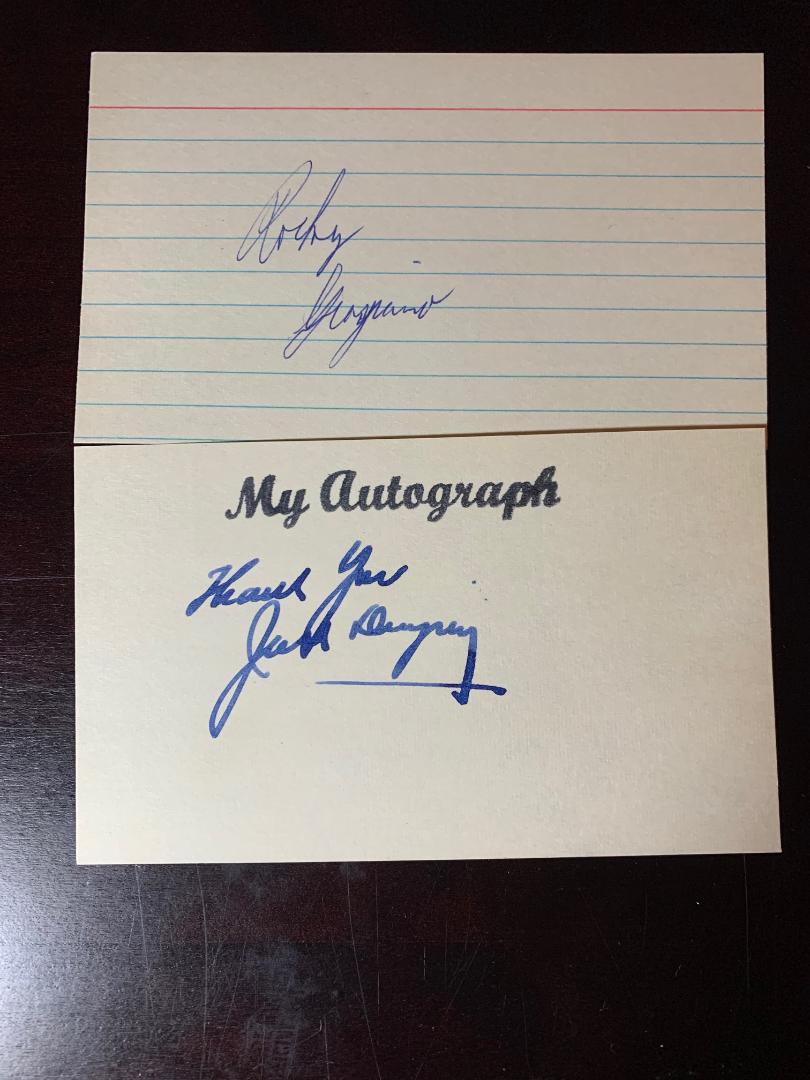 Rocky
Graziano
My Autograph
Thank You
Jack Dempsey